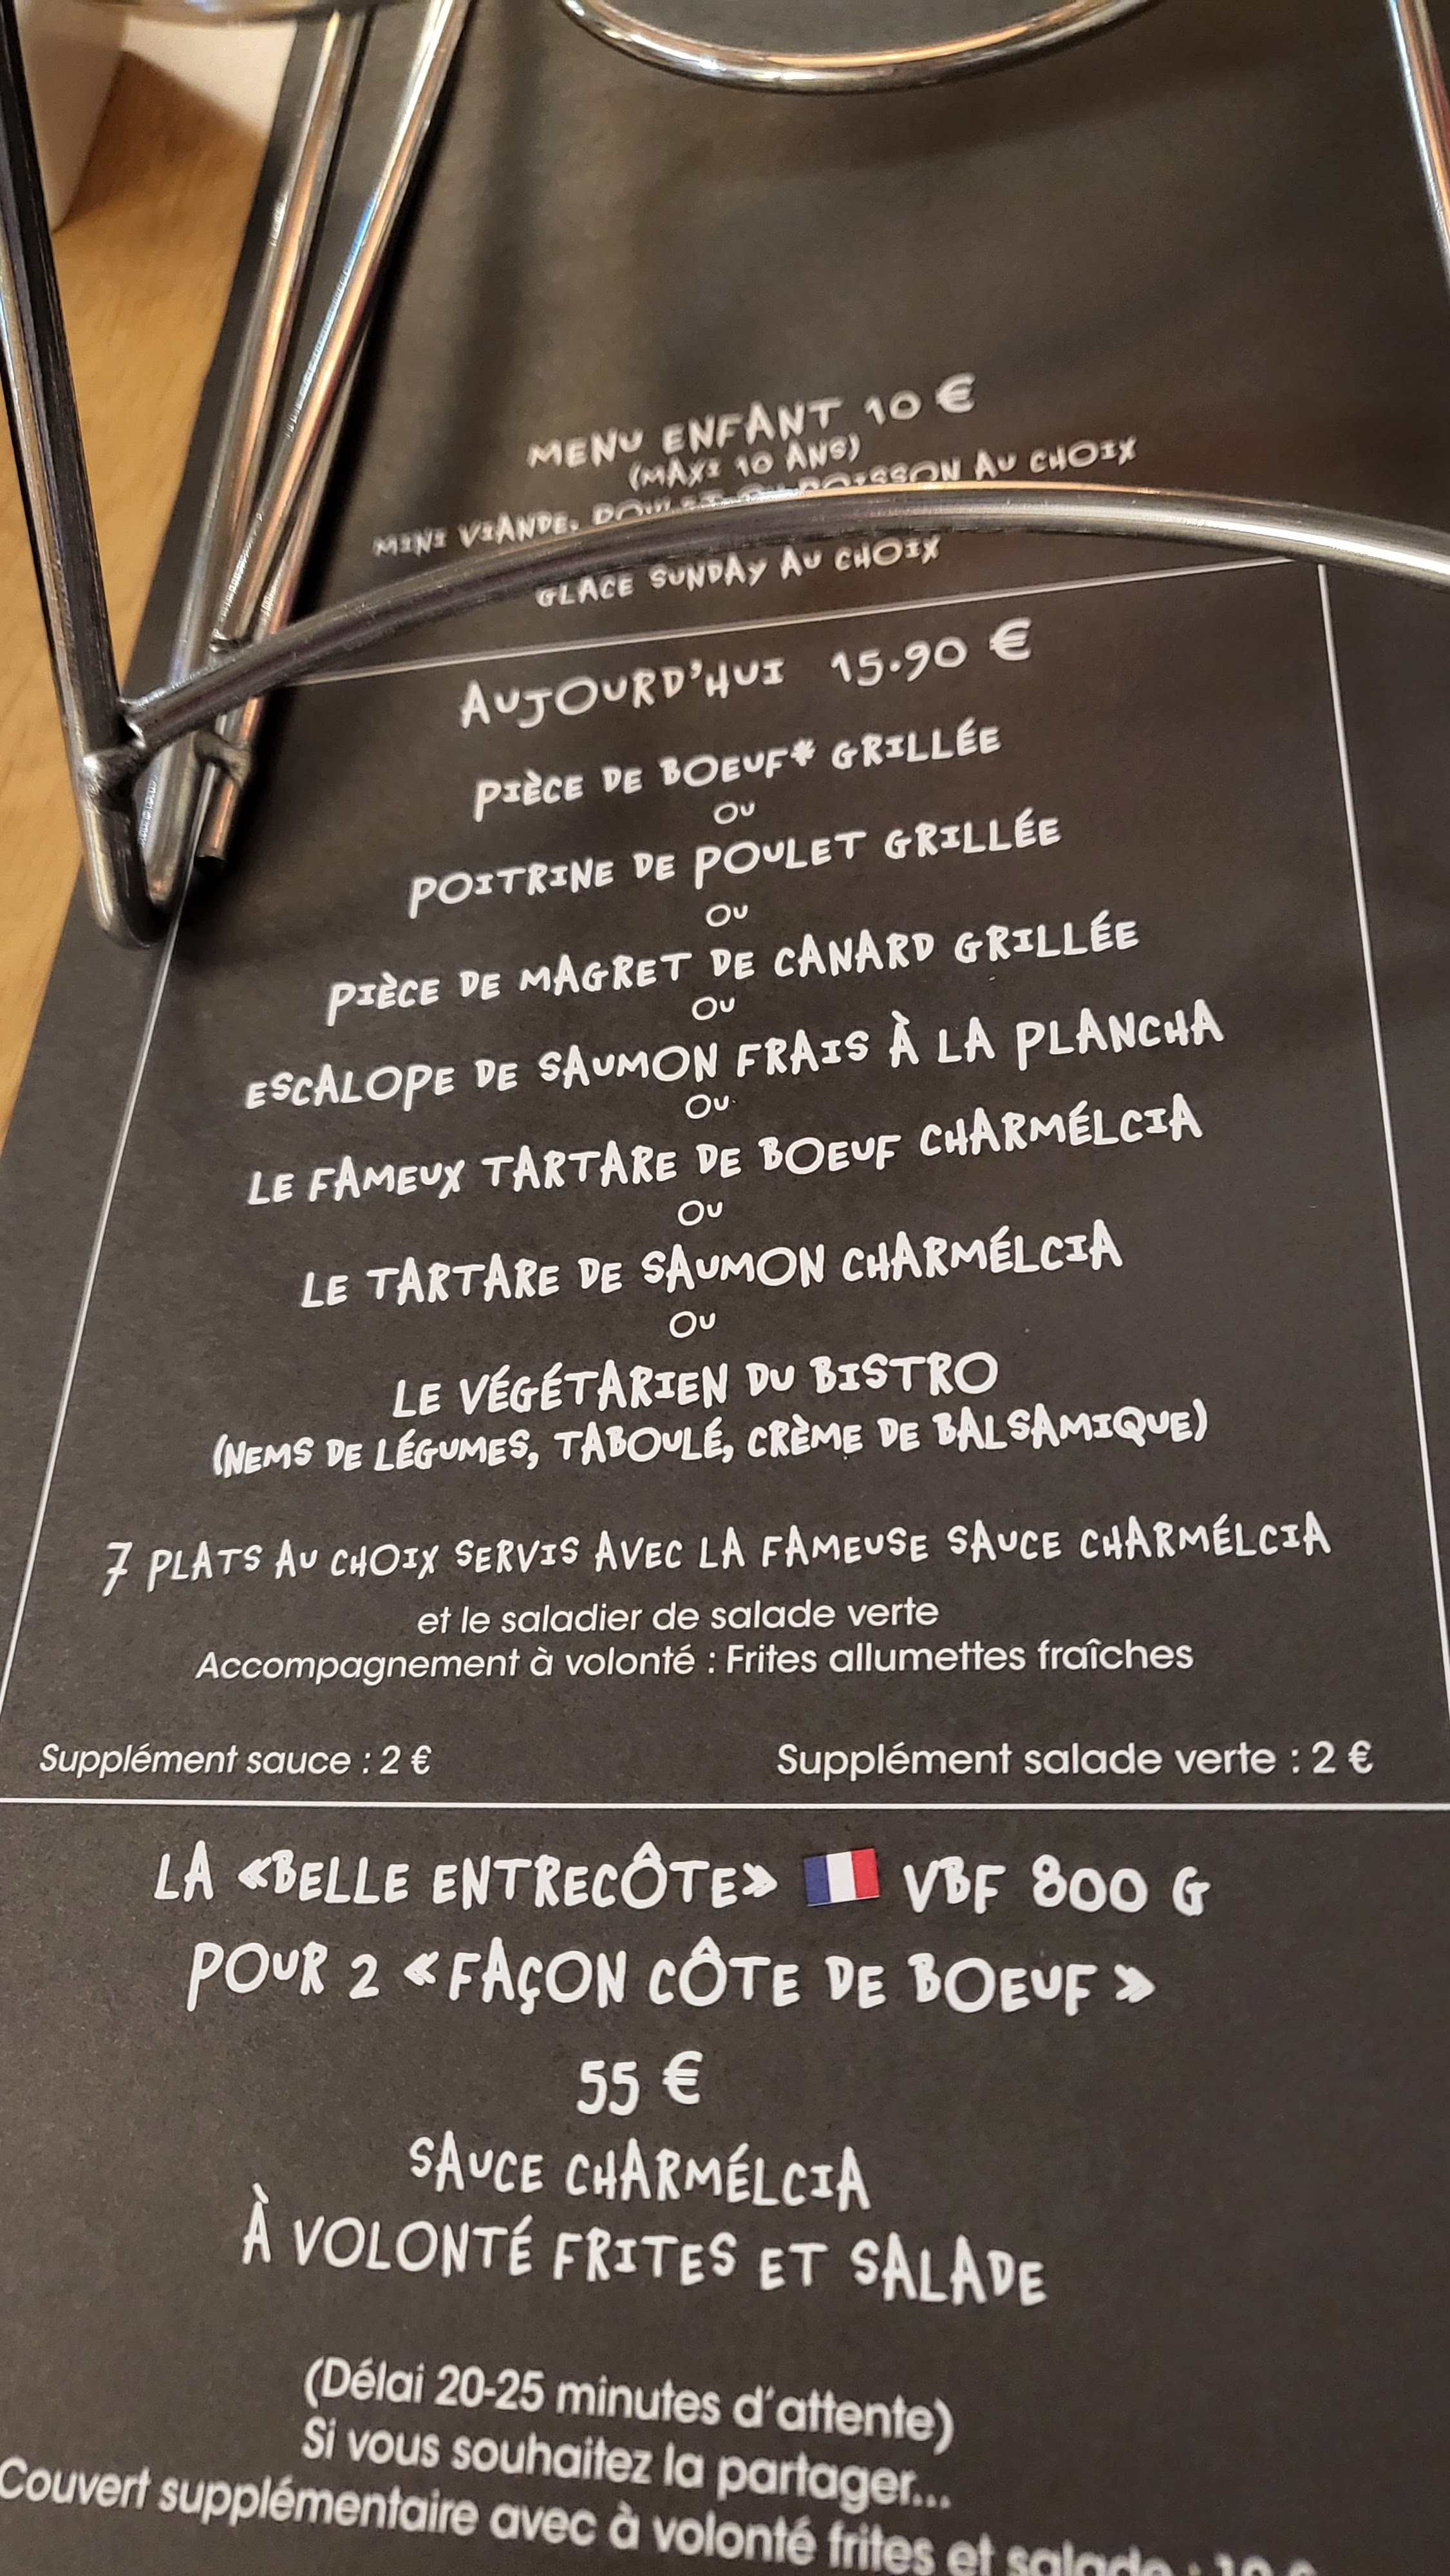 MENU ENFANT 10 €
(MAXI 10 ANS)
MINI VIANDE, POULET OU POISSON AU CHOIX
GLACE SUNDAY AU CHOIX
AUJOURD'HUI 15.90 €
PIÈCE DE BOEUF* GRILLÉE
OU
POITRINE DE POULET GRILLÉE
OU
PIÈCE DE MAGRET DE CANARD GRILLÉE
OU
ESCALOPE DE SAUMON FRAIS À LA PLANCHA
OU
LE FAMEUX TARTARE DE BOEUF CHARMÉLCIA
OU
LE TARTARE DE SAUMON CHARMÉLCIA
OU
LE VÉGÉTARIEN DU BISTRO
(NEMS DE LÉGUMES, TABOULÉ, CRÈME DE BALSAMIQUE)
7 PLATS AU CHOIX SERVIS AVEC LA FAMEUSE SAUCE CHARMÉLCIA
et le saladier de salade verte
Accompagnement à volonté : Frites allumettes fraîches
Supplément sauce : 2 €
Supplément salade verte : 2 €
LA «BELLE ENTRECÔTE» VBF 800 G
POUR 2 « FAÇON CÔTE DE BOEUF »
55 €
SAUCE CHARMÉLCIA
À VOLONTÉ FRITES ET SALADE
(Délai 20-25 minutes d'attente)
Si vous souhaitez la partager...
Couvert supplémentaire avec à volonté frites et salade :